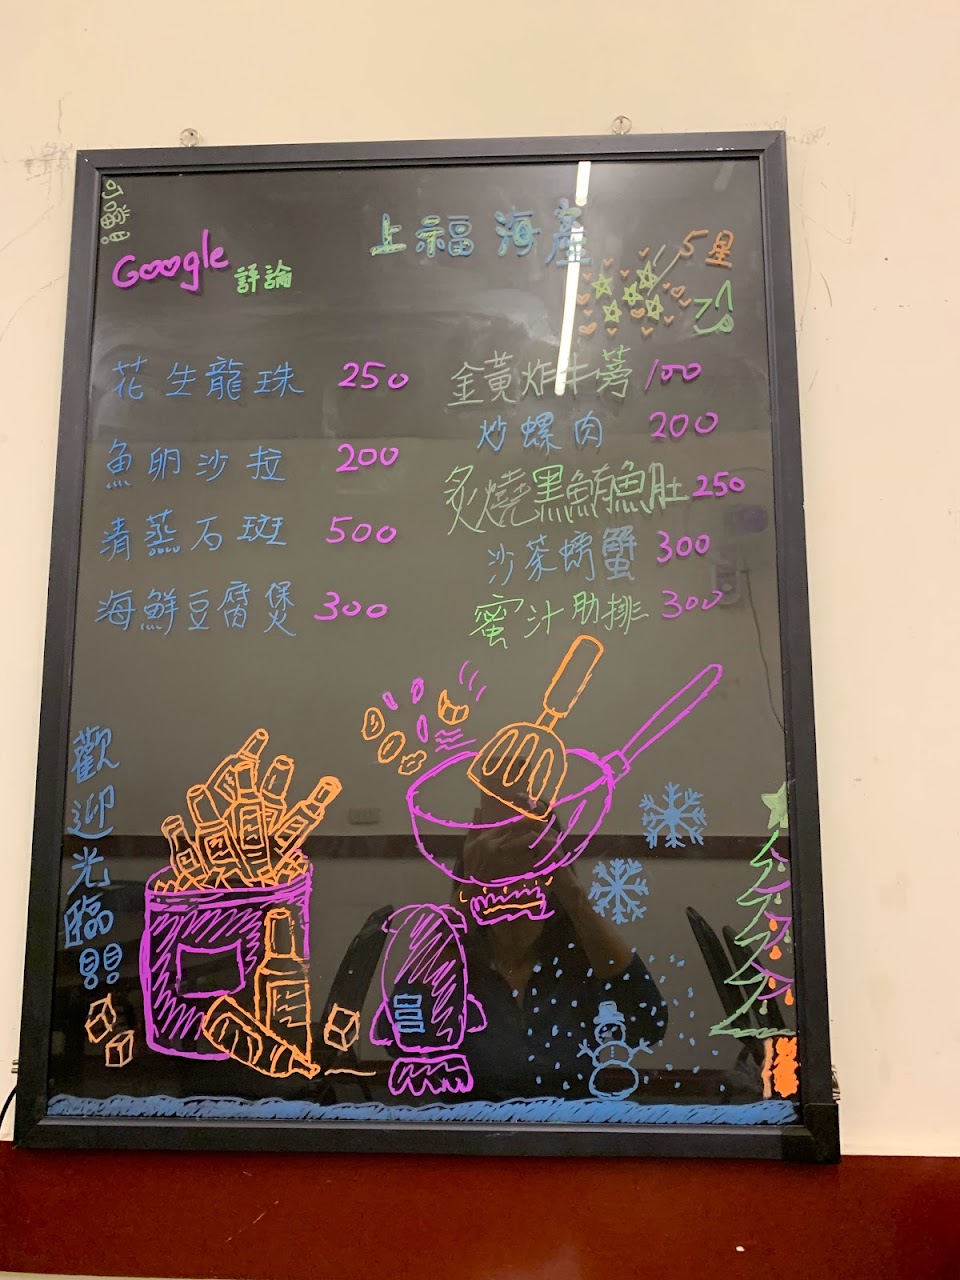 上福海產
Google 評論
5星
花生龍珠 250
魚卵沙拉 200
清蒸石斑 500
海鮮豆腐煲 300
金黃炸牛蒡 100
炒螺肉 200
炙燒黑鮪魚肚 250
沙茶螃蟹 300
蜜汁肋排 300
歡迎光臨